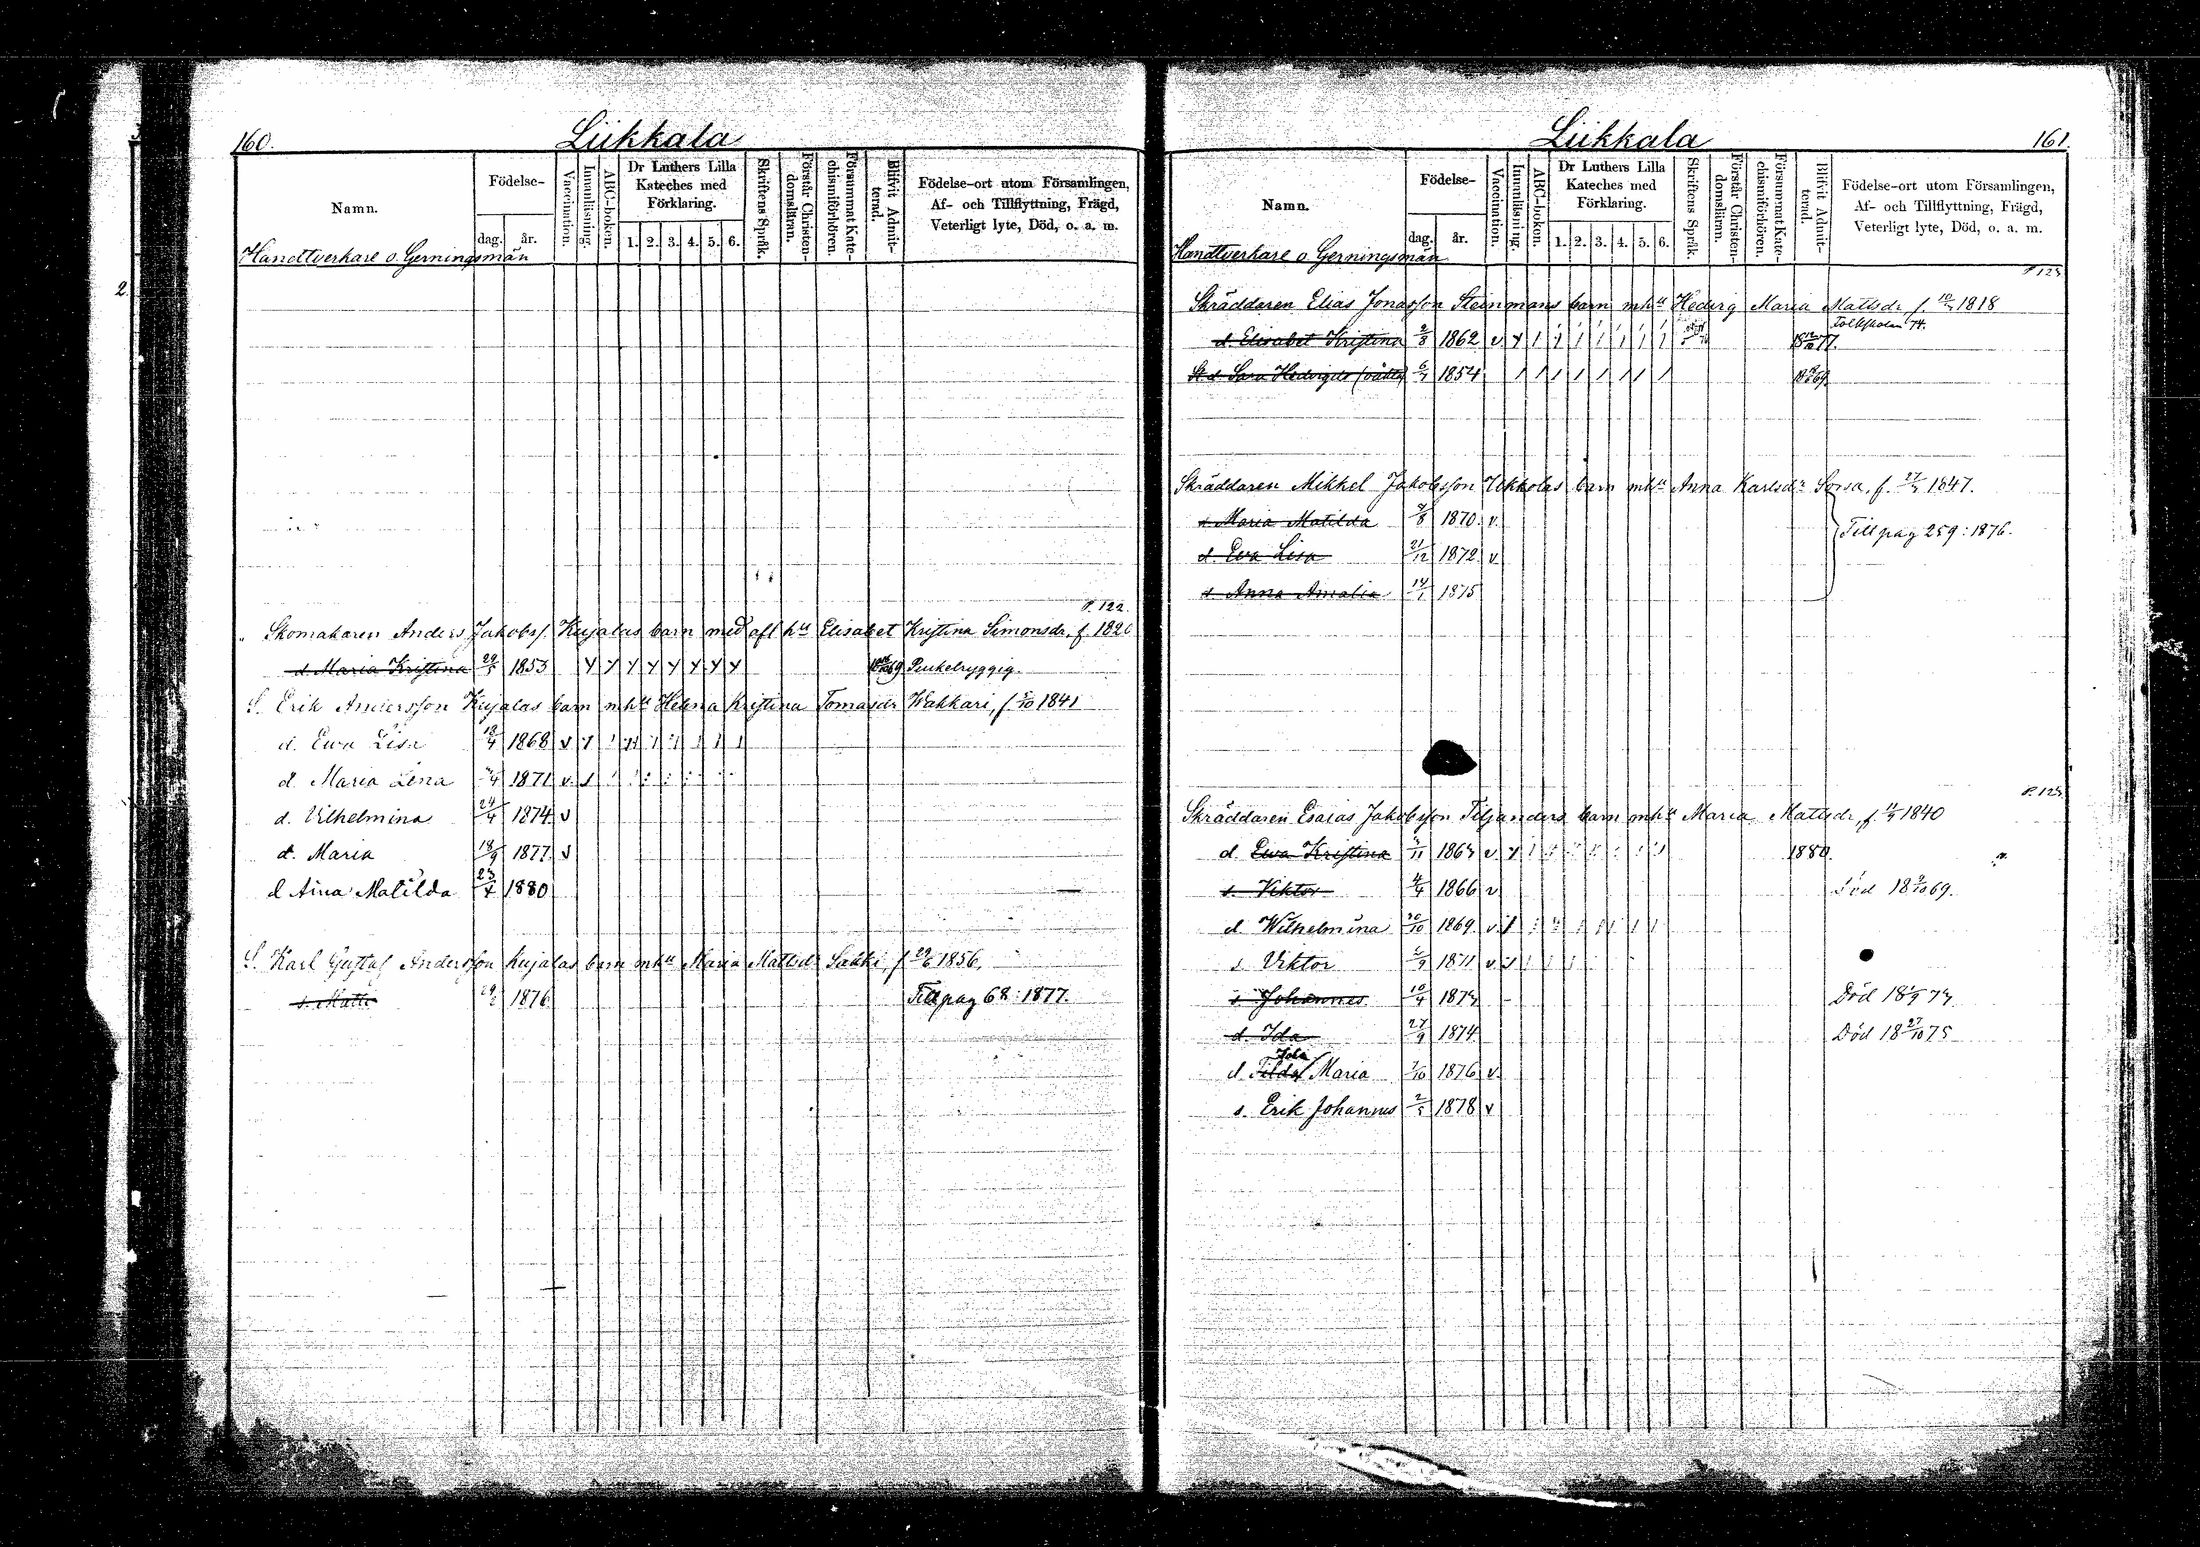 160. Liikkala
Namn. Födelse- dag. år. Vaccination. Innanläsning. ABC-boken. Dr Luthers Lilla Kateches med Förklaring. 1. 2. 3. 4. 5. 6. Skriftens Språk. Förstår Christendomsläran. Försummat Katechismiförhören. Blifvit Admitterad. Födelse-ort utom Församlingen, Af- och Tillflyttning, Frägd, Veterligt lyte, Död, o. a. m.
Handtverkare o. Gerningsmän
P. 122.
Skomakaren Anders Jakobs. Kujalas barn med afl hu Elisabet Kristina Simonsdr, f. 1820
d. Maria Kristina 29/5 1853 Puckelryggig.
S. Erik Andersson Kujalas barn mhu Helena Kristina Tomasdr Wakkari, f. 5/10 1841
d. Ewa Lisa 18/4 1868 v
d. Maria Lena 1871 v
d. Vilhelmina 24/4 1874 v
d. Maria 18/9 1877 v
d Aina Matilda 23/4 1880
S. Karl Gustaf Andersson Kujalas barn mhu Maria Mattsdr Sakki f 29/6 1856.
s. Matts 1876 Till pag 68: 1877.
Liikkala 161.
Namn. Födelse- dag. år. Vaccination. Innanläsning. ABC-boken. Dr Luthers Lilla Kateches med Förklaring. 1. 2. 3. 4. 5. 6. Skriftens Språk. Förstår Christendomsläran. Försummat Katechismiförhören. Blifvit Admitterad. Födelse-ort utom Församlingen, Af- och Tillflyttning, Frägd, Veterligt lyte, Död, o. a. m.
Handtverkare o Gerningsmän
P 123
Skräddaren Elias Jonasson Steinmans barn mhu Hedvig Maria Mattsdr f. 1818
Folkskolan 74.
d. Elisabet Kristina 2/8 1862 v
St. d. Sara Hedvigsdr 6/7 1854
Skräddaren Mikkel Jakobsson Ukkolas barn mhu Anna Karlsdr Sorsa, f. 1847.
Maria Matilda 1870 v.
d. Ewa Lisa 21/12 1872 v Till pag 259: 1876.
Anna Amalia 14/1 1875
P. 123
Skräddaren Esaias Jakobsson Tiljanders barn mhu Maria Mattsdr, f. 1840
d. Ewa Kristina 1863 v 1880
s. Viktor 4/4 1866 v Död 18 9/10 69.
d. Wilhelmina 1869 v
s. Viktor 1871 v
s. Johannes 10/4 1873 Död 18 73
d. Ida 27/9 1874 Död 18 27/10 75
Ida
d. Tilda Maria 1876 v.
s. Erik Johannes 2/5 1878 v